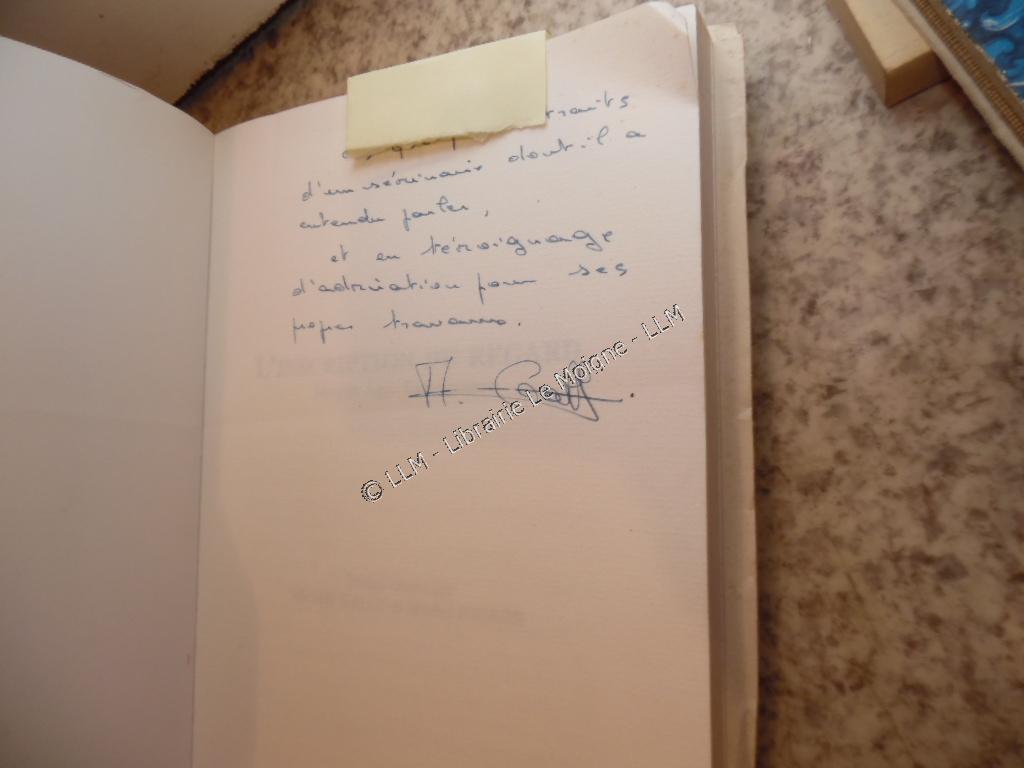 traits
d'un séminaire dont il a
entendu parler,
et en témoignage
d'admiration pour ses
propres travaux.
L'INSCRIPTION DU REGARD
M.
© LLM - Librairie Le Moigne - LLM